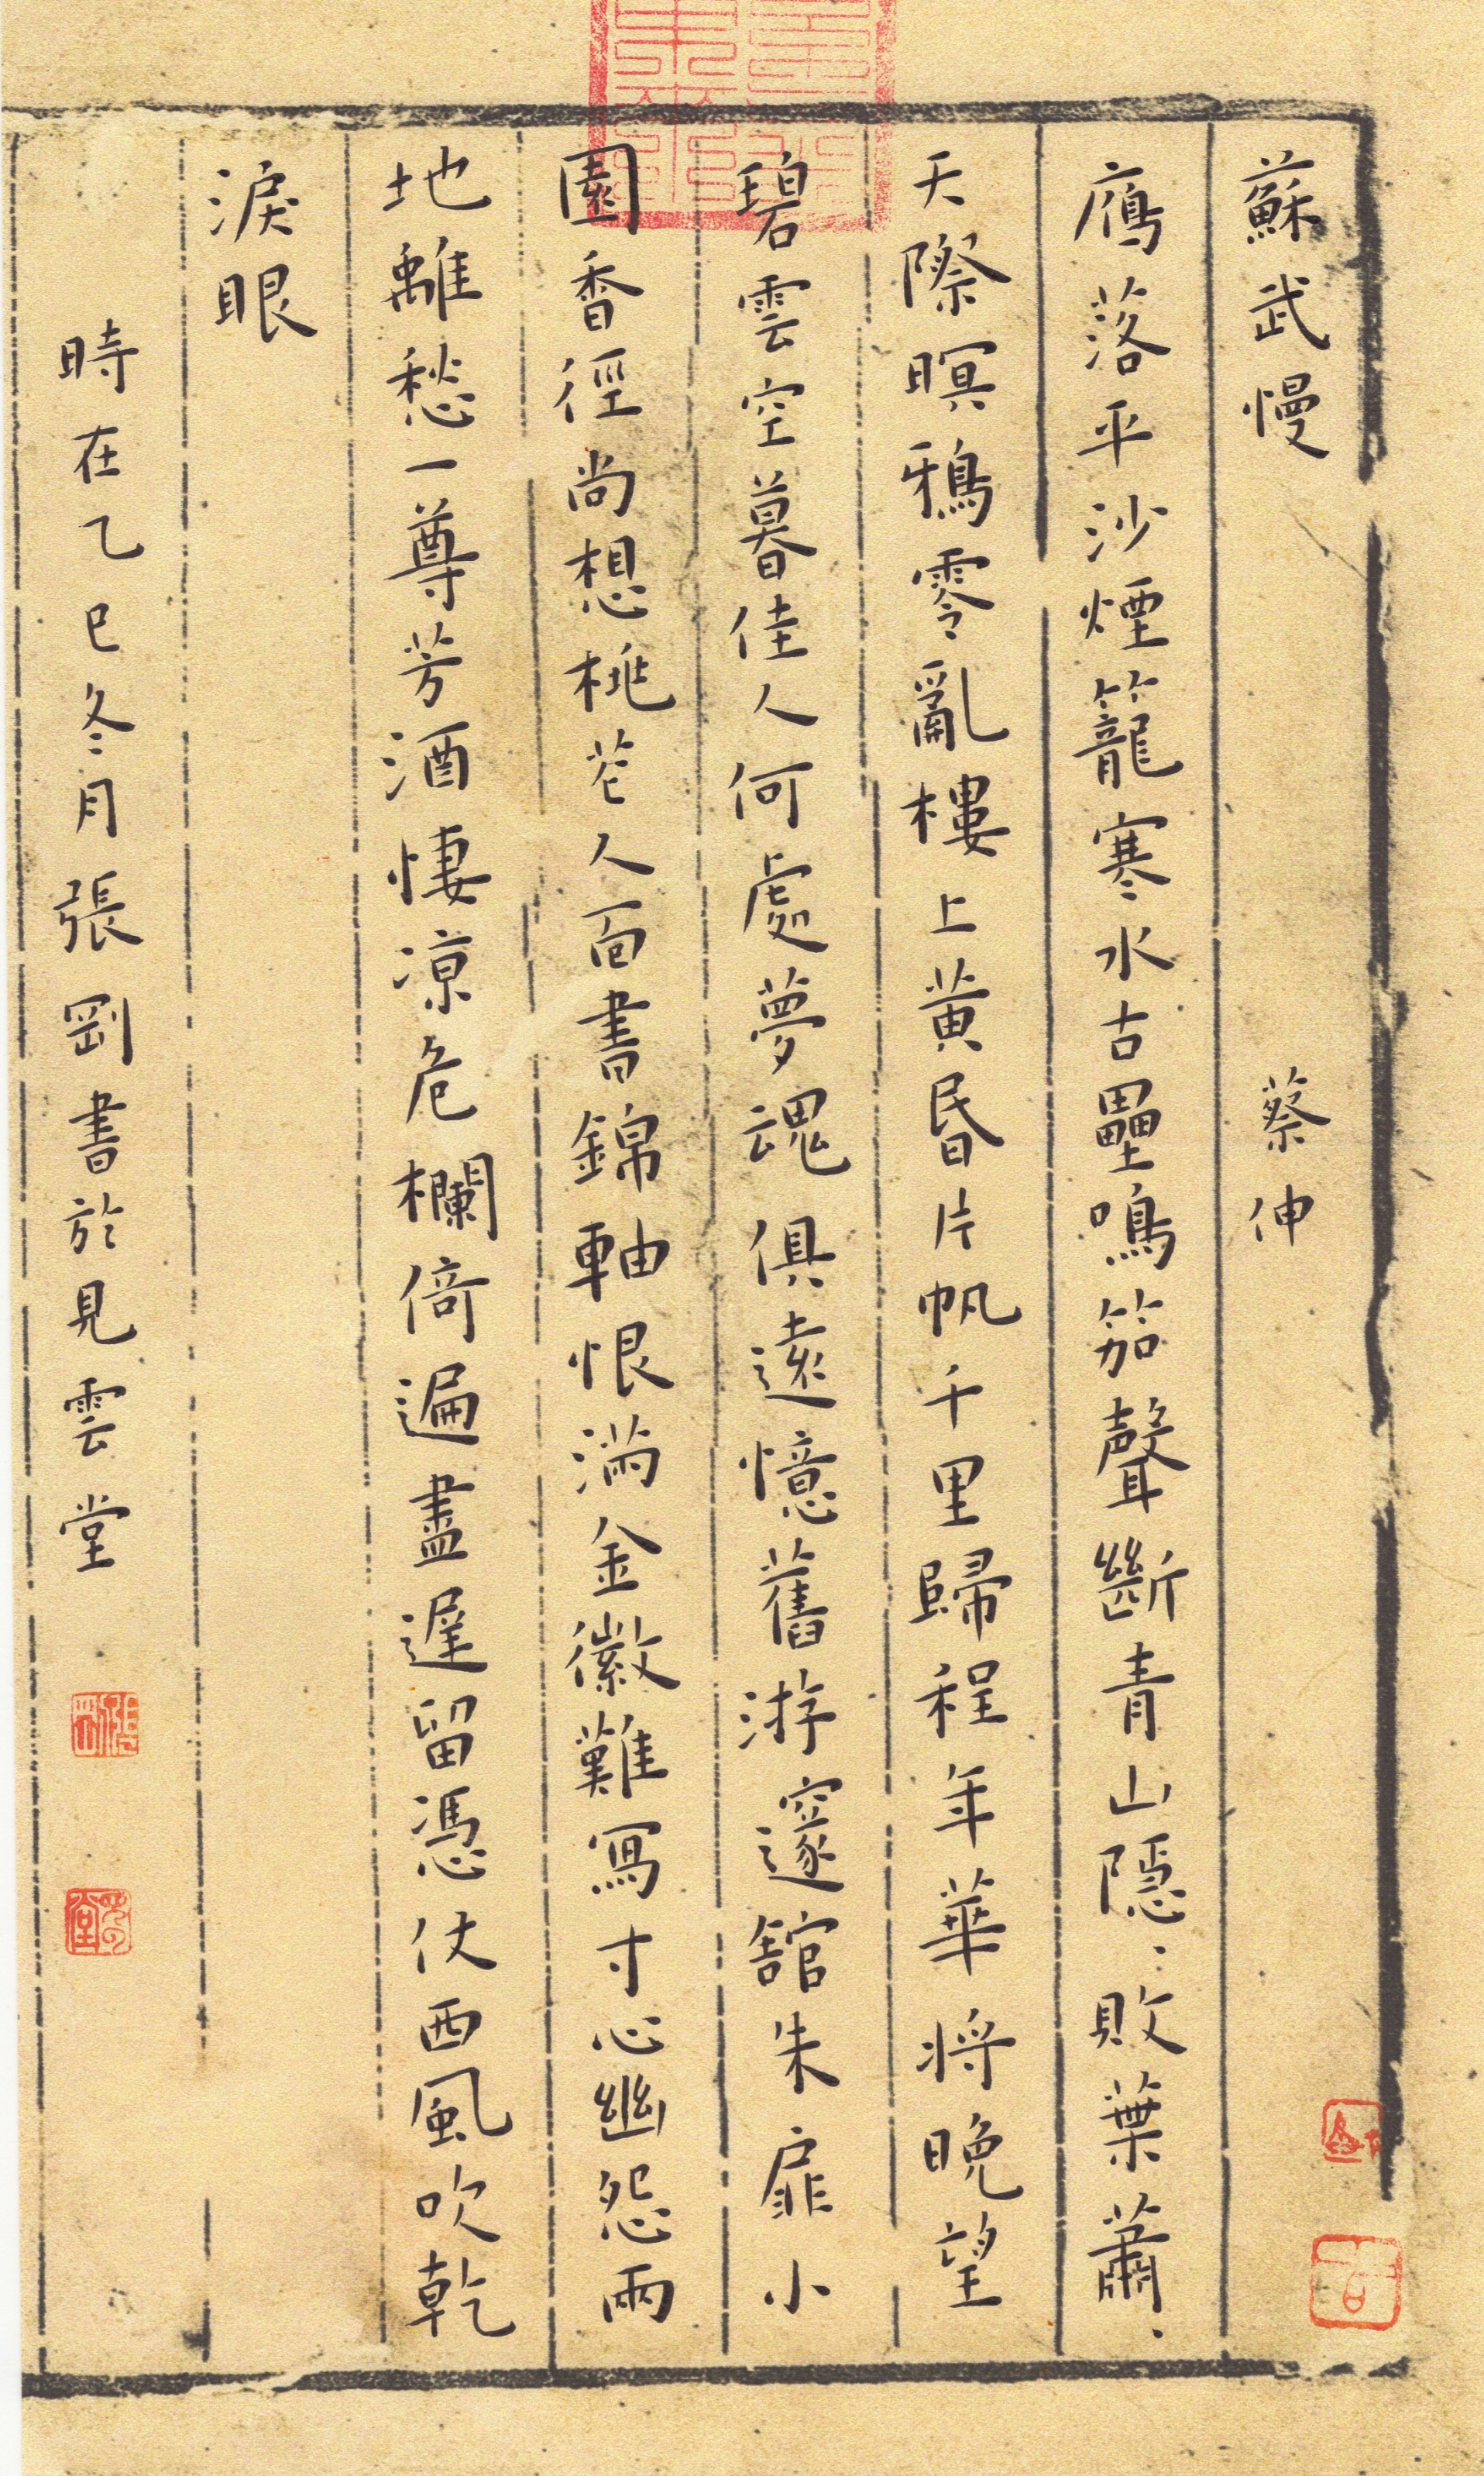 蘇武慢 蔡伸
鴈落平沙煙籠寒水古壘鳴笳聲斷青山隱:敗葉蕭:
天際暝鴉零亂樓上黄昏片帆千里歸程年華將晚望
碧雲空暮佳人何處夢魂俱遠憶舊游邃館朱扉小
園香徑尚想桃花人面書錦軸恨滿金徽難寫寸心幽怨兩
地離愁一尊芳酒悽涼危欄倚遍盡遲留憑仗西風吹乾
淚眼
時在乙巳冬月張剛書於見雲堂